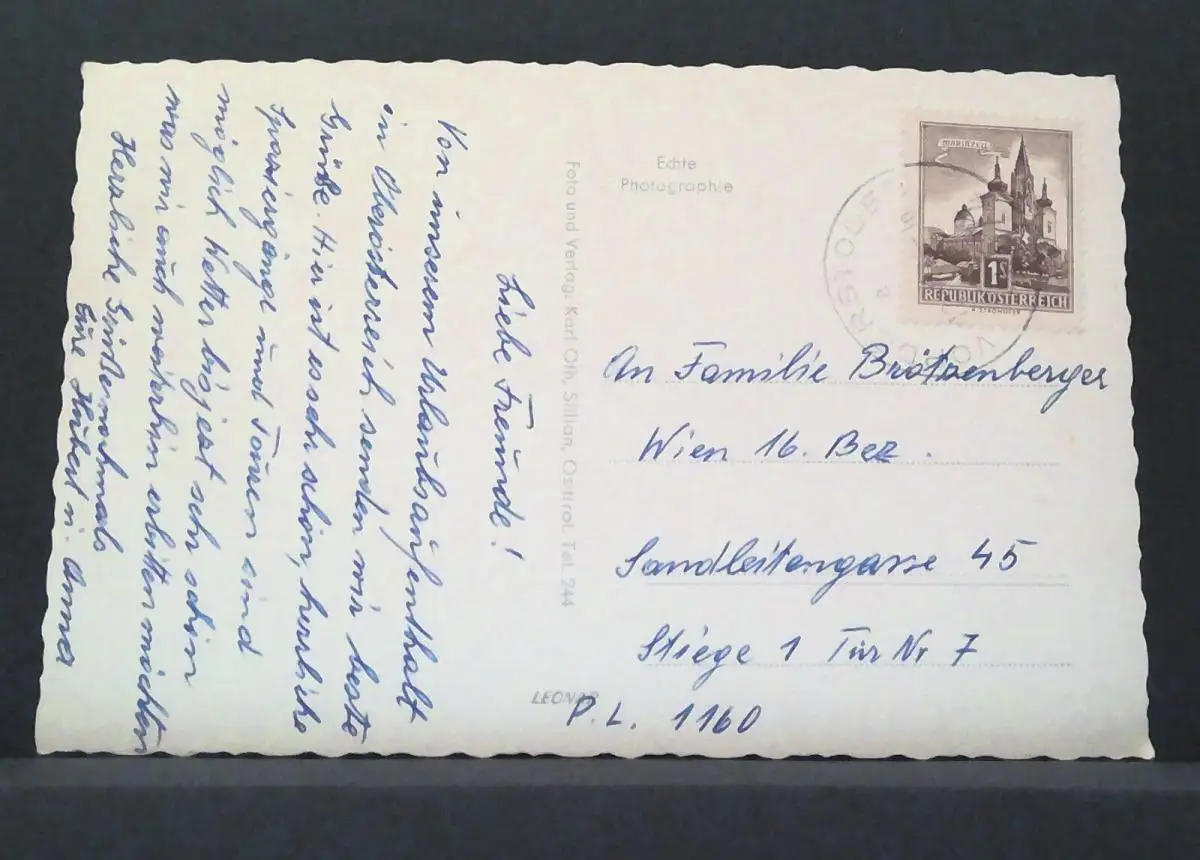 Liebe Freunde!
Von unserem Urlaubsaufenthalt
in Oberösterreich senden wir beste
Grüße. Hier ist es sehr schön, herrliche
Spaziergänge und Touren sind
möglich Wetter bis jetzt sehr schön
was wir auch weiterhin erbitten möchten
Herzliche Grüße nochmals
Eure Hubert u. Anna
Foto und Verlag: Karl Oth, Sillian, Osttirol, Tel. 244
Echte
Photographie
LEONAR
MARIAZELL
1S
REPUBLIK ÖSTERREICH
VORDERSTODE
An Familie
Wien 16. Bez.
Sandleitengasse 45
Stiege 1 Tür Nr 7
P.L. 1160